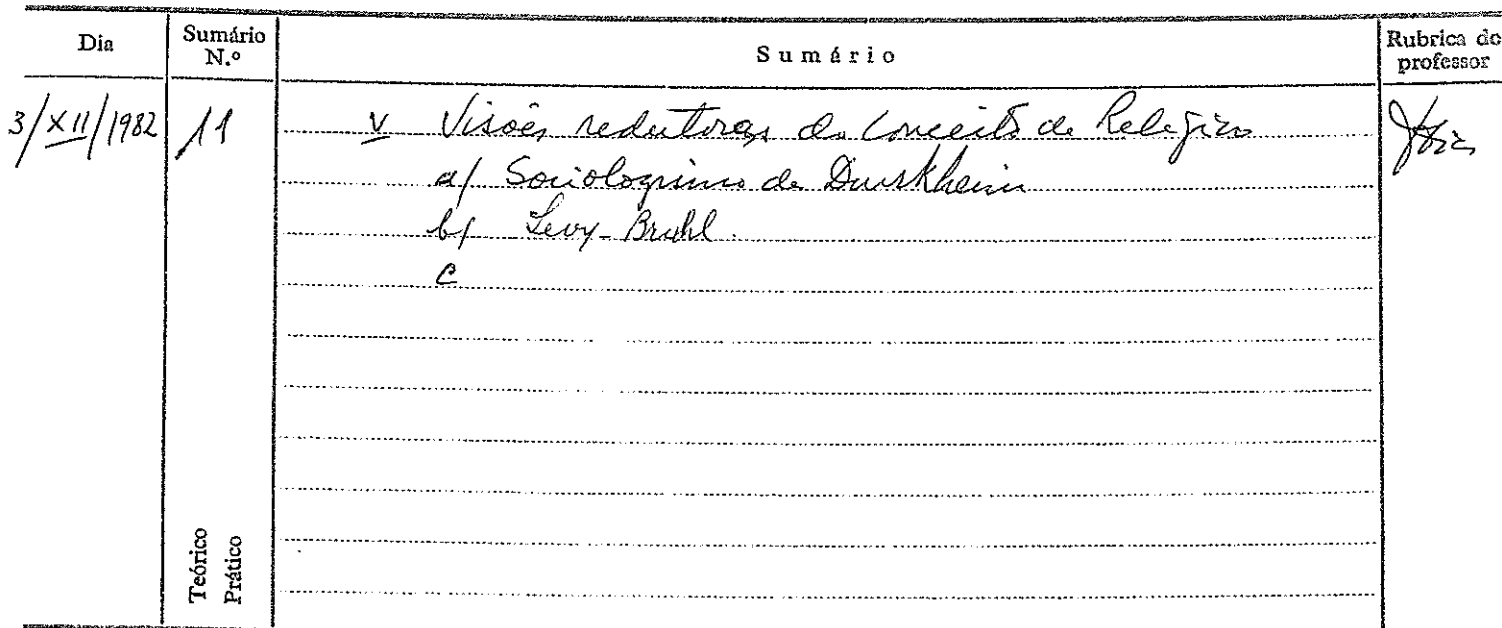 Dia Sumário N.º Sumário Rubrica do professor
3/XII/1982 11 V Visões redutoras do Conceito de Religião
a/ Sociologismo de Durkheim
b/ Levy-Bruhl.
c
Teórico
Prático